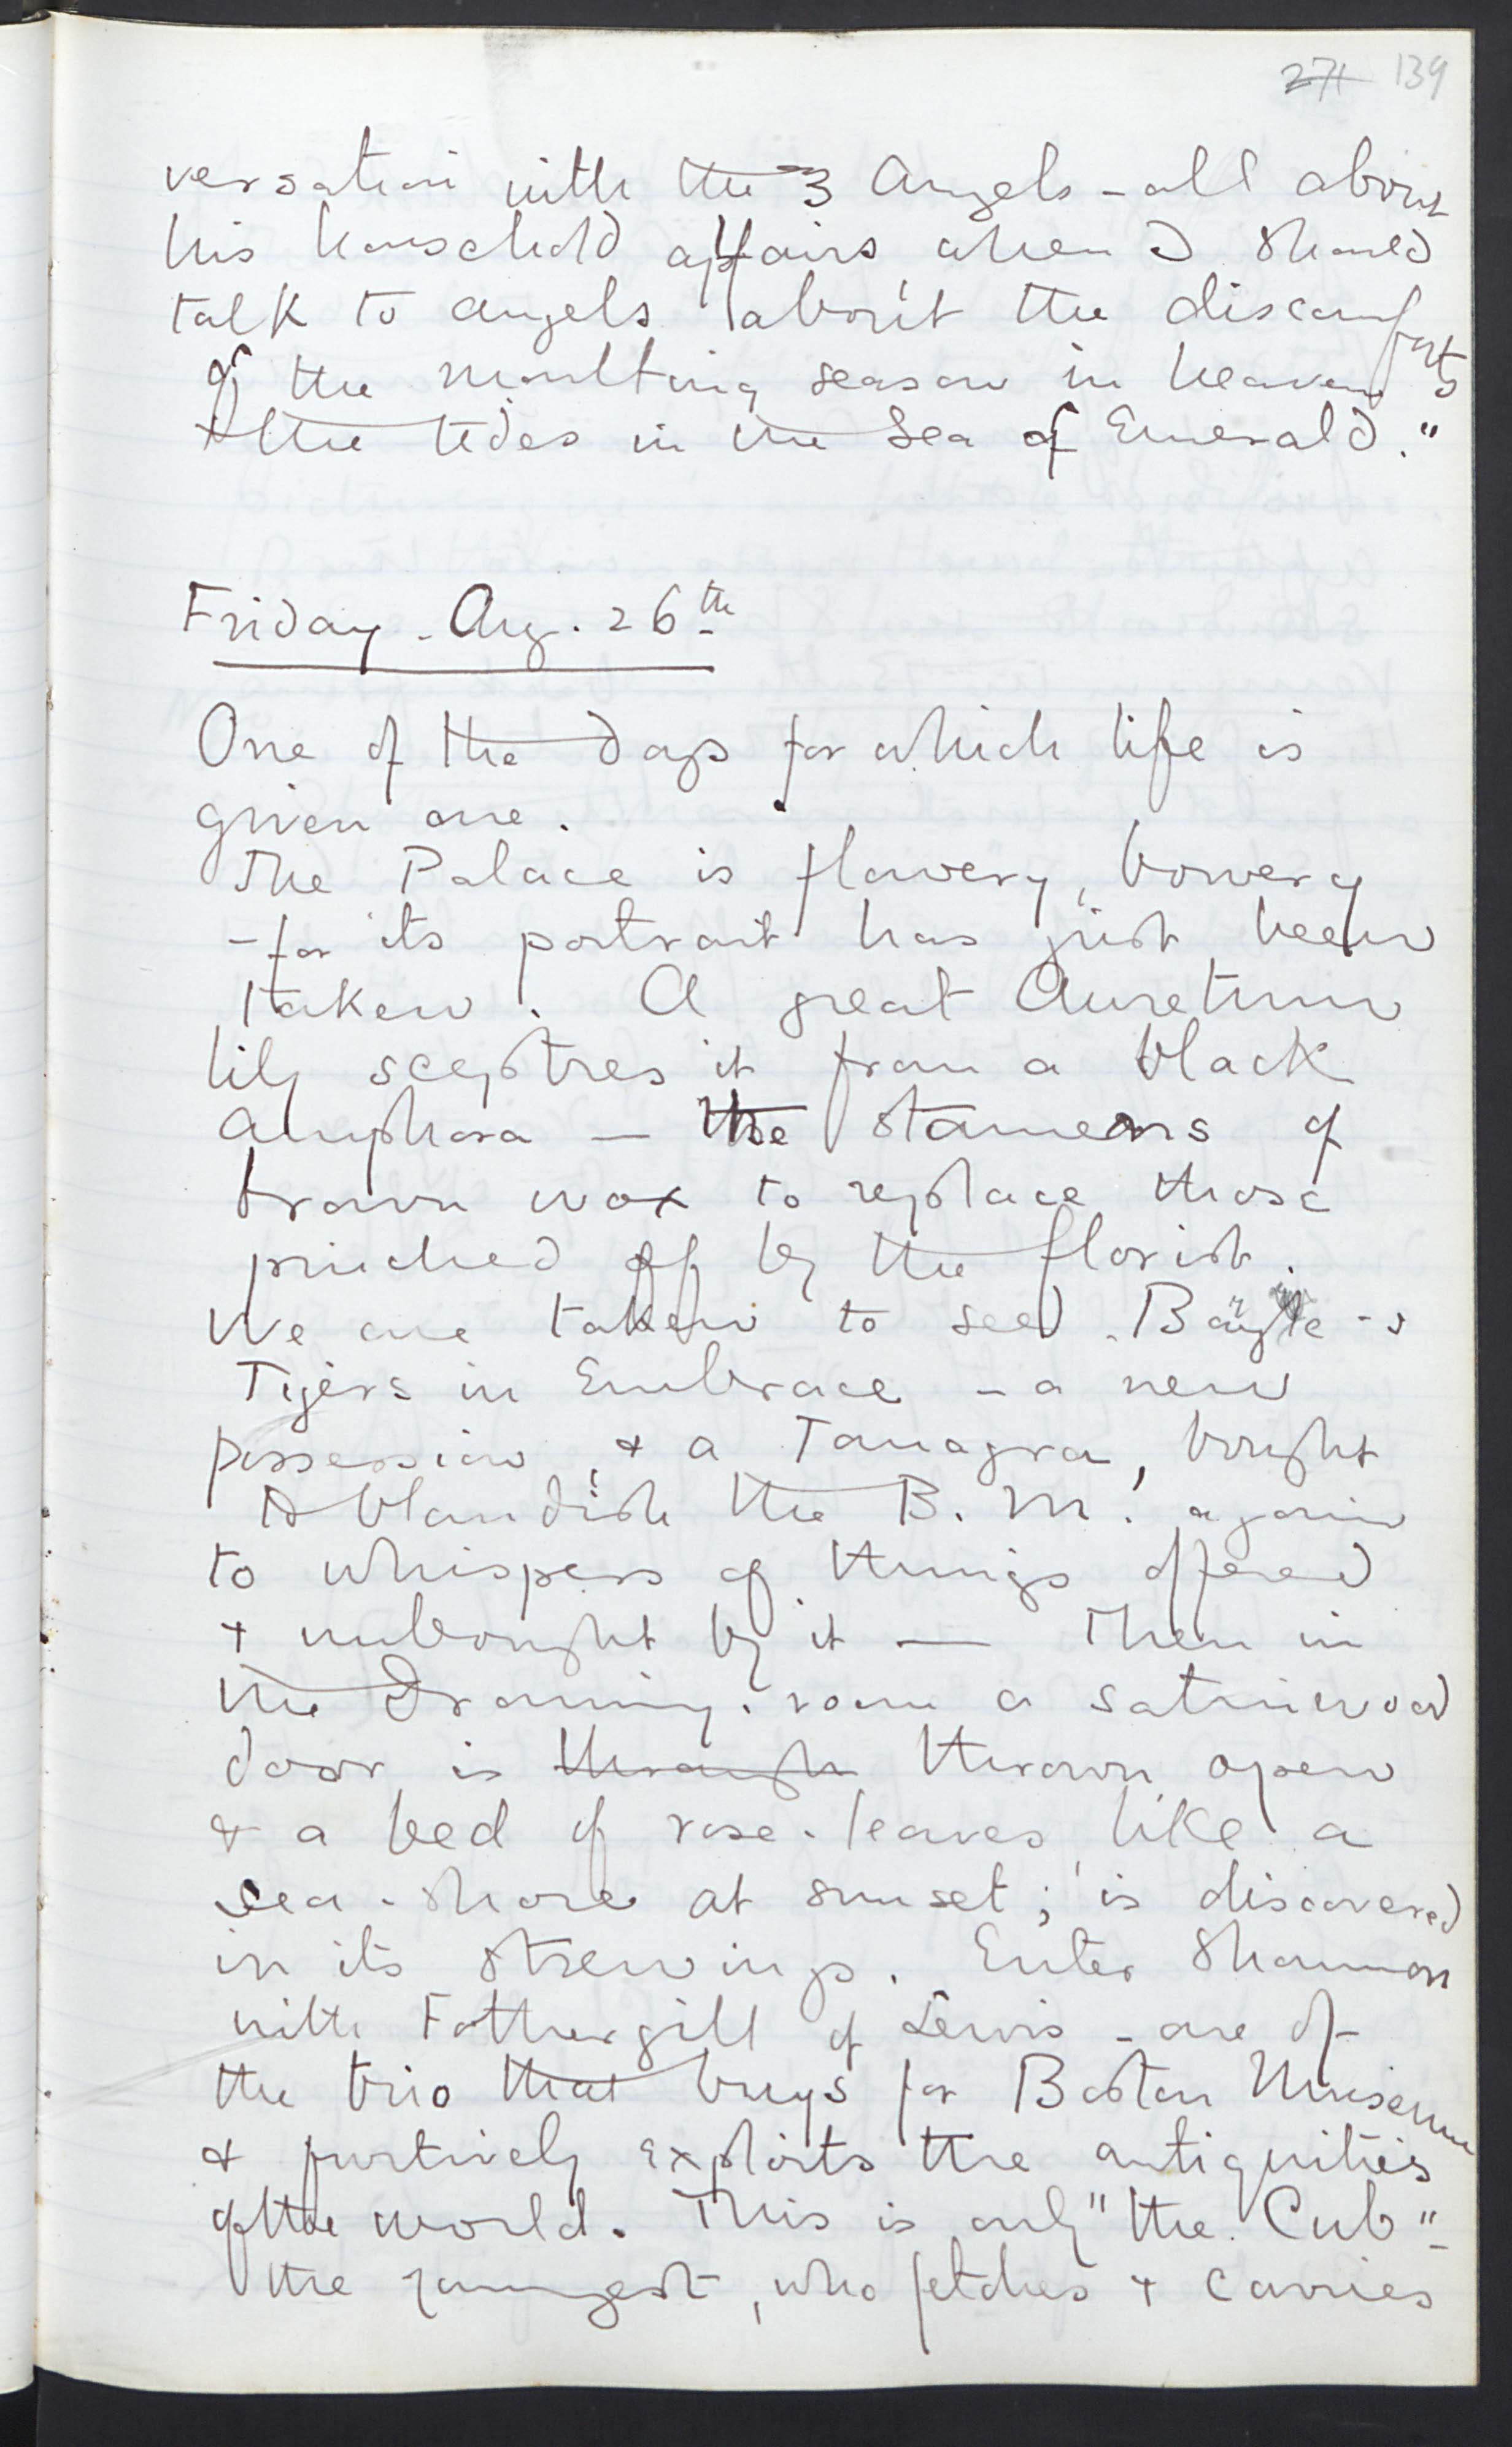 271 139
versation with the 3 Angels - all about
his household affairs when I should
talk to angels about the discomforts
of the moulting season in heaven
& the tides in the Sea of Emerald."
Friday. Aug. 26th
One of the days for which life is
given one.
The Palace is flowery, bowery
- for its portrait has just been
taken. A great Auretum
lily sceptres it from a black
amphora — the stamens of
brown wax to replace those
pinched off by the florist.
We are taken to see -s
Tigers in Embrace - a new
possession, & a Tanagra, bought
to blandish the B. M. again
to whispers of things offered
& unbought by it — Then in
the Drawing-room a satinwood
door is through thrown open
& a bed of rose-leaves, like a
sea-shore at sunset, is discovered
in its strewings. Enter Shannon
with Fothergill of Lewis - one of
the trio that buys for Boston Museum
& furtively exploits the antiquities
of the world. This is only "the Cub" -
the youngest, who fetches & carries